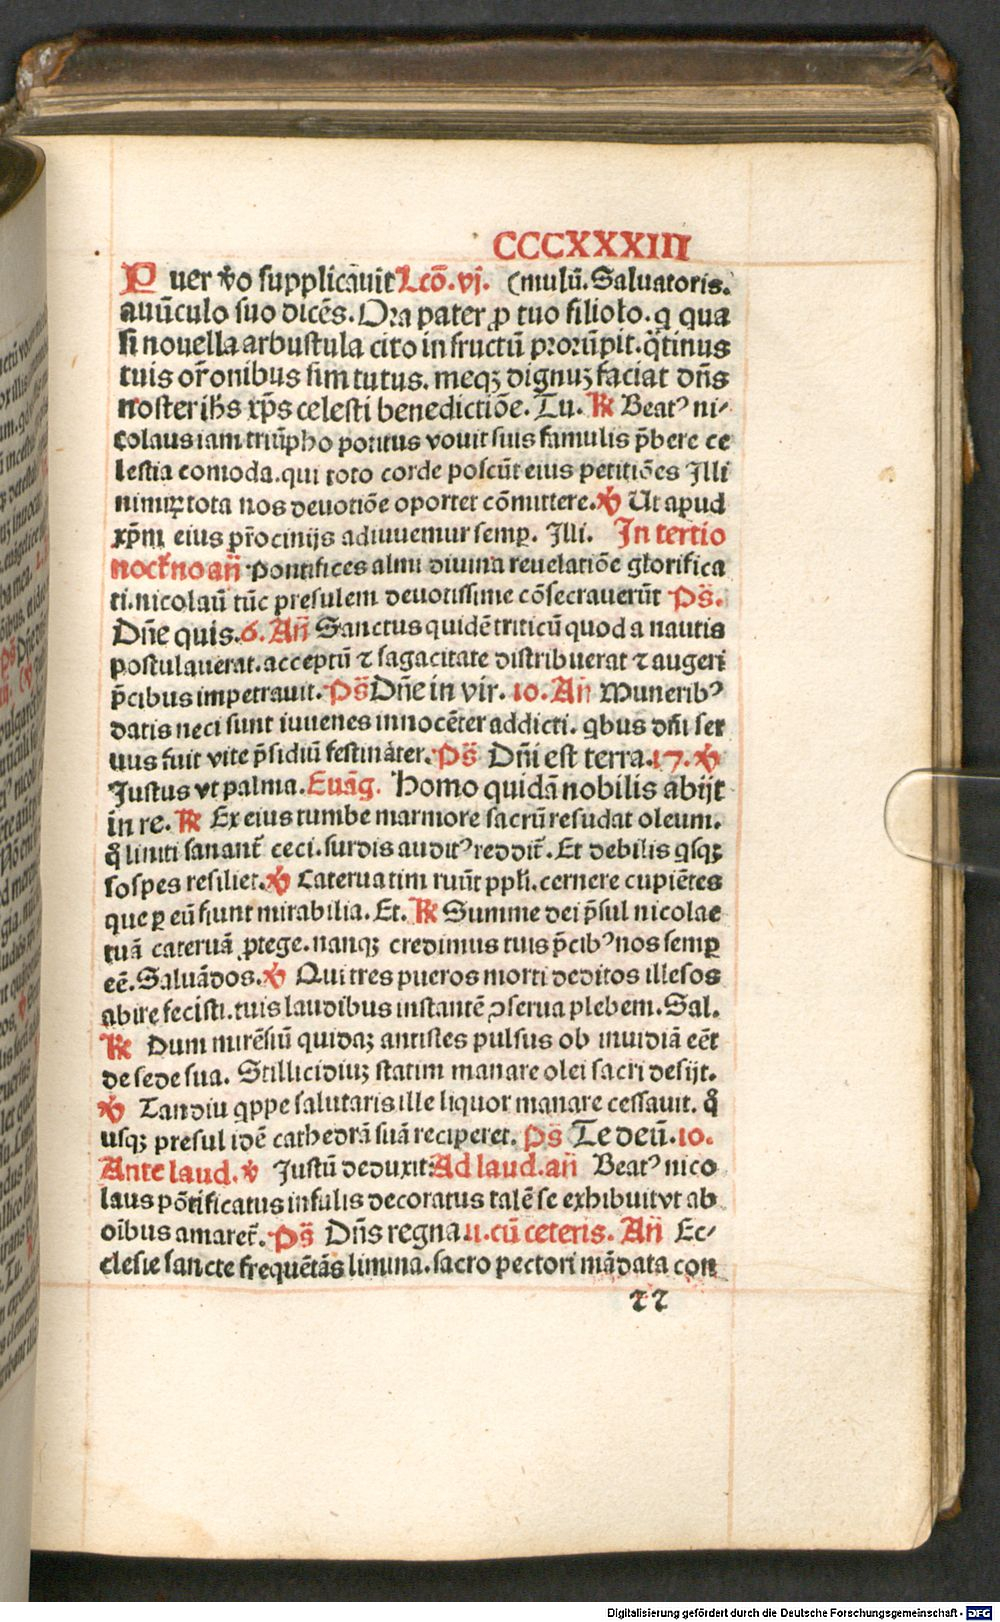 CCCXXXIII
Puer ṽo supplicauit Lcō. vj. (mulū. Saluatoris.
auūculo suo dicēs. Ora pater ꝓ tuo filiolo. q̇ qua
si nouella arbustula cito in fructū prorūpit. q̇tinus
tuis or̃onibus sim tutus. meqꝫ dignuꝫ faciat dn̄s
noster ih̄s xp̄s celesti benedictiōe. Tu. ℟ Beatꝰ ni⸗
colaus iam triūpho potitus nouit suis famulis p̄bere ce
lestia comoda. qui toto corde poscūt eius petitiōes Illi
nimiꝝ tota nos deuotiōe oportet cōmittere. ℣ Ut apud
xp̄m eius pr̄ocinijs adiuuemur semꝑ. Illi. In tertio
nocťno an̄ Pontifices almi diuina reuelatiōe glorifica
ti. nicolaū tūc presulem deuotissime cōsecrauerūt Ps̄.
Dn̄e quis. 6. An̄ Sanctus quidē triticū quod a nautis
postulauerat. acceptū ⁊ sagacitate distribuerat ⁊ augeri
p̄cibus impetrauit. Ps̄ Dn̄e in vir. 10. An̄ Muneribꝰ
datis neci sunt iuuenes innocēter addicti. qbus dn̄i ser
uus fuit vite p̄sidiū festināter. Ps̄ Dn̄i est terra. 17. ℣
Justus vt palma. Euāg. Homo quidā nobilis abijt
in re. ℟ Ex eius tumbe marmore sacrū resudat oleum.
q̊ liniti sanant̃ ceci. surdis auditꝰ reddit̃. Et debilis qsqꝫ
sospes resiliet. ℣ Cateruatim ruūt ppl̄i. cernere cupiētes
que ꝑ eū fiunt mirabilia. Et. ℟ Summe dei p̄sul nicolae
tuā cateruā ꝓtege. nanqꝫ credimus tuis p̄cibꝰ nos semꝑ
eē. Saluādos. ℣ Qui tres pueros morti deditos illesos
abire fecisti. tuis laudibus instantē ꝯserua plebem. Sal.
℟ Dum mirēsiū quidaꝫ antistes pulsus ob inuidiā eēt
de sede sua. Stillicidiuꝫ statim manare olei sacri desijt.
℣ Tandiu qppe salutaris ille liquor manare cessauit. q̊
usqꝫ presul idē cathedrā suā reciperet. Ps̄ Te deū. 10.
Ante laud. ℣ Justū deduxit: Ad laud. an̄ Beatꝰ nico
laus pōtificatus infulis decoratus talē se exhibuit vt ab
oībus amaret̃. Ps̄ Dn̄s regna. 11. cū ceteris. An̄ Ec⸗
clesie sancte frequētās limina. sacro pectori mādata con
⁊⁊
Digitalisierung gefördert durch die Deutsche Forschungsgemeinschaft - DFG